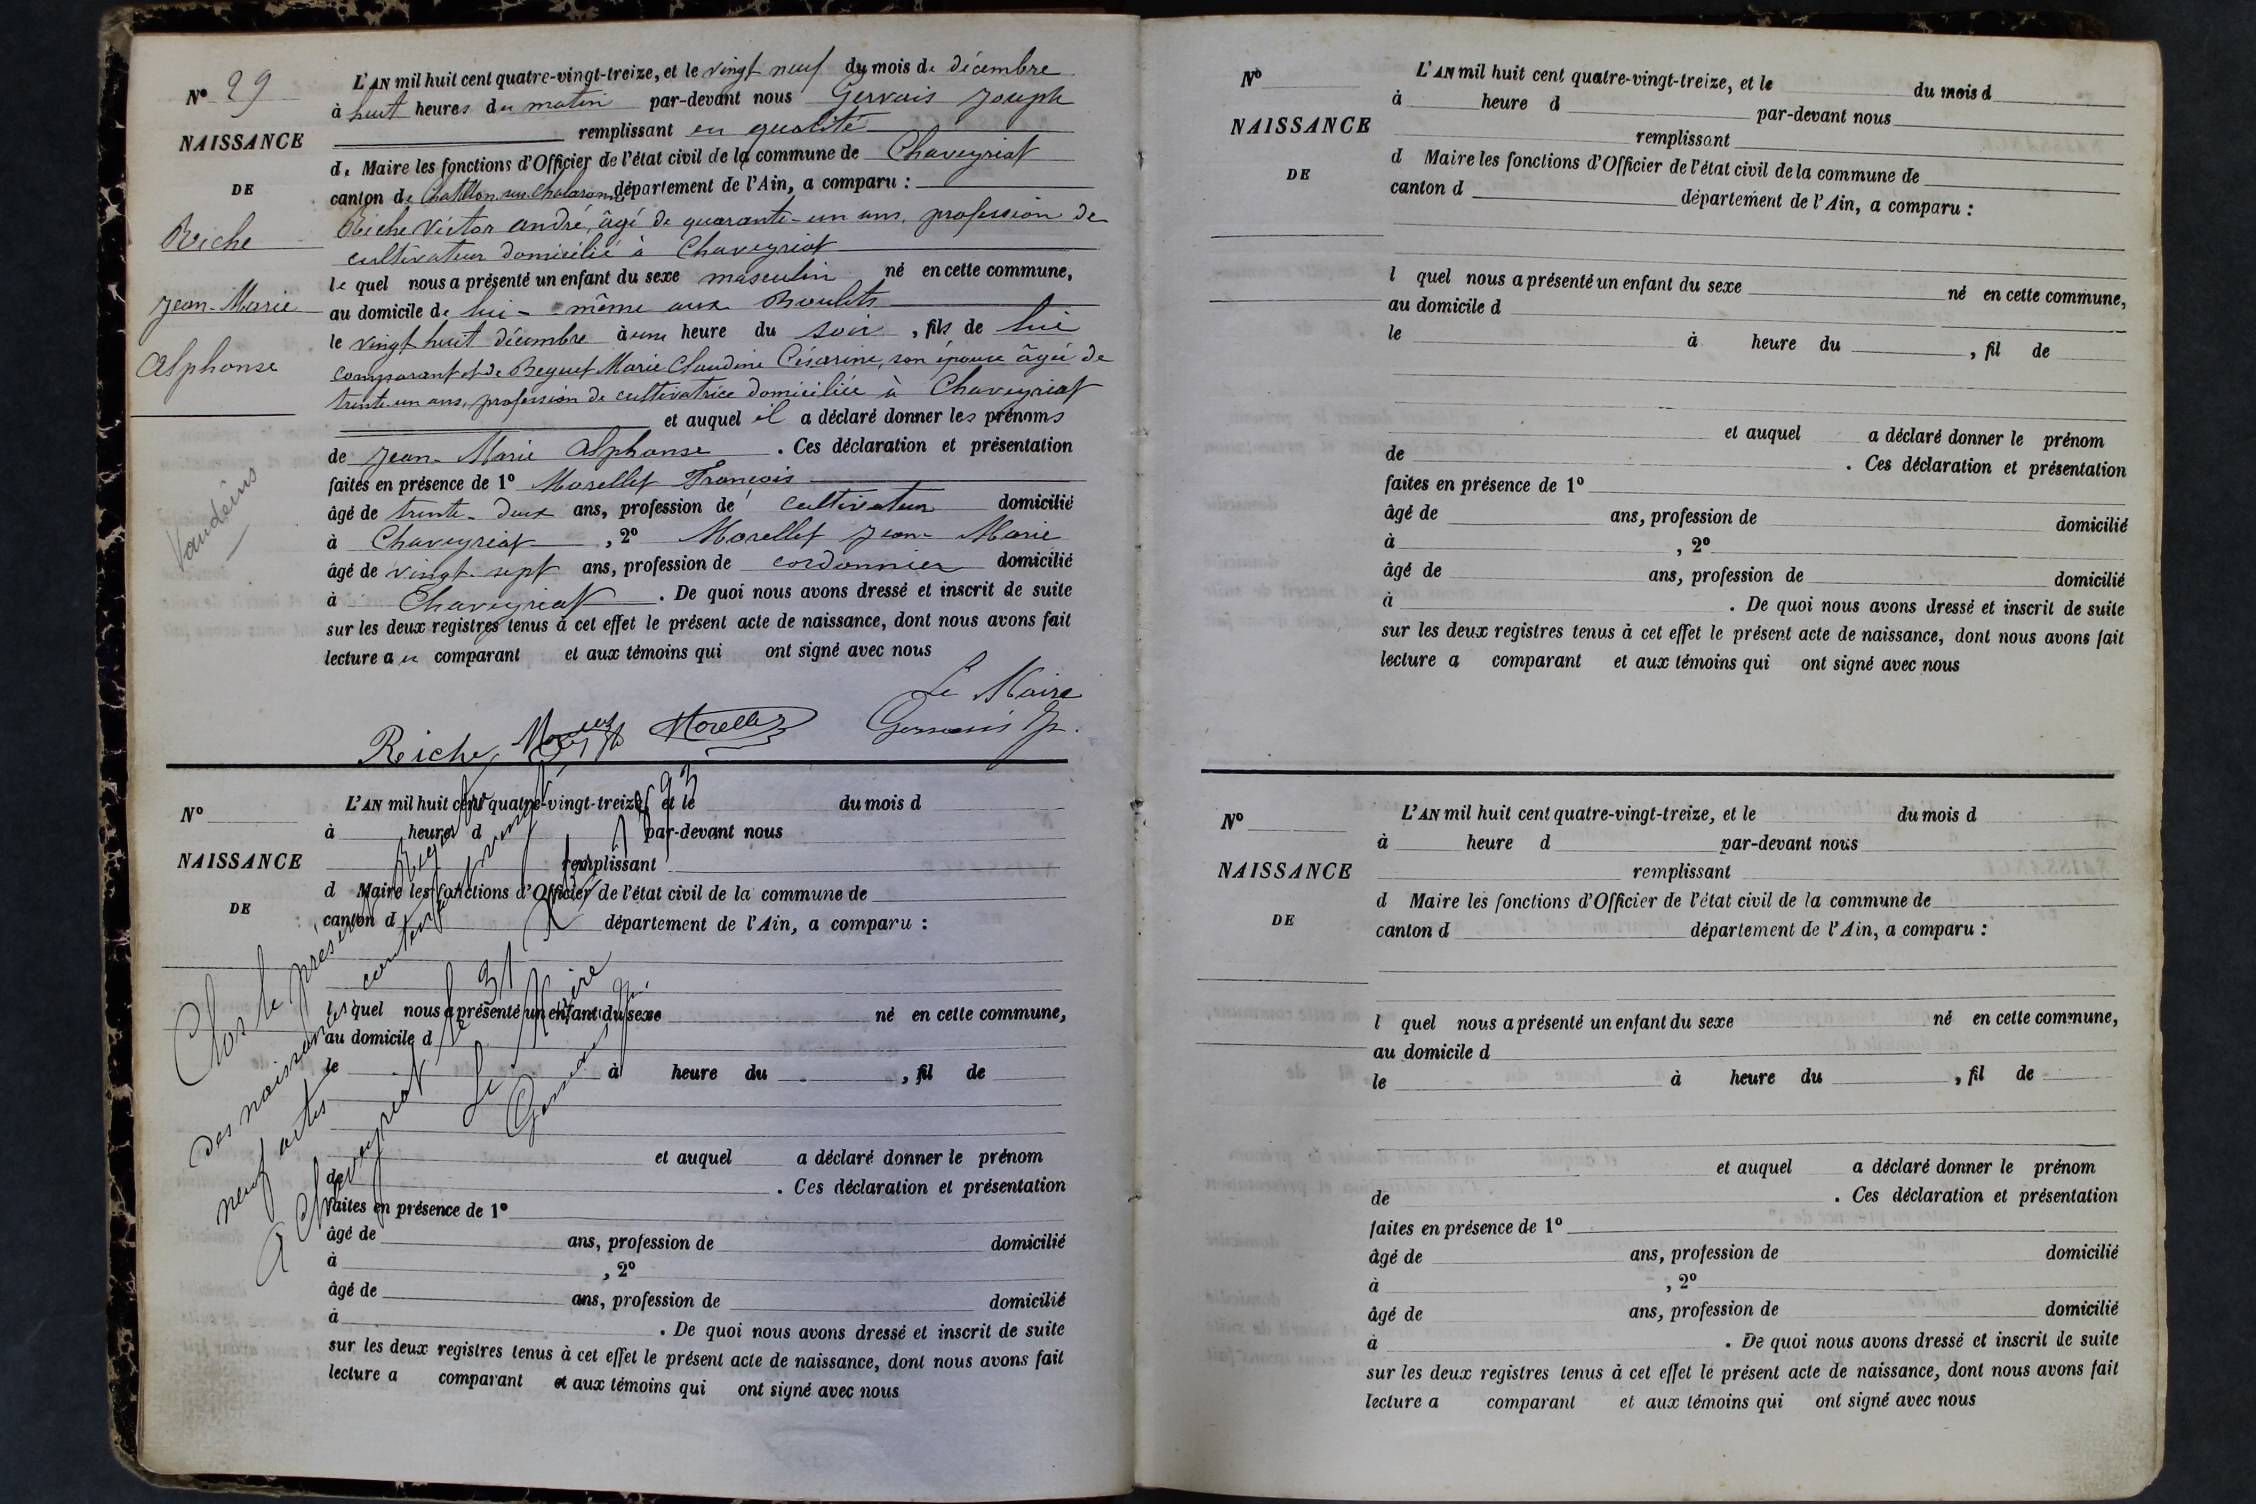 N° 29
NAISSANCE
DE
Reiche
Jean-Marie
Alphonse
Vandeins
L'AN mil huit cent quatre-vingt-treize, et le vingt neuf du mois de décembre
à huit heures du matin par-devant nous Gervais Joseph
remplissant en qualité
de Maire les fonctions d'Officier de l'état civil de la commune de Chaveyriat
canton de Chatillon sur Chalaronne département de l'Ain, a comparu :
Reiche Victor André, âgé de quarante-un ans, profession de
cultivateur domicilié à Chaveyriat
le quel nous a présenté un enfant du sexe masculin né en cette commune,
au domicile de lui-même aux Boulets
le vingt huit décembre à une heure du soir, fils de lui
comparant et de Beguet Marie Claudine Césarine, son épouse âgée de
trente-un ans, profession de cultivatrice domiciliée à Chaveyriat
et auquel il a déclaré donner les prénoms
de Jean-Marie Alphonse. Ces déclaration et présentation
faites en présence de 1° Morellet François
âgé de trente-deux ans, profession de cultivateur domicilié
à Chaveyriat, 2° Morellet Jean-Marie
âgé de vingt-sept ans, profession de cordonnier domicilié
à Chaveyriat. De quoi nous avons dressé et inscrit de suite
sur les deux registres tenus à cet effet le présent acte de naissance, dont nous avons fait
lecture au comparant et aux témoins qui ont signé avec nous
Le Maire
Reiche Morellet Gervais Jh.
N°
NAISSANCE
DE
L'AN mil huit cent quatre-vingt-treize, et le du mois d
à heure d par-devant nous
remplissant
d Maire les fonctions d'Officier de l'état civil de la commune de
canton d département de l'Ain, a comparu :
l quel nous a présenté un enfant du sexe né en cette commune,
au domicile d
le à heure du , fil de
et auquel a déclaré donner le prénom
de . Ces déclaration et présentation
faites en présence de 1°
âgé de ans, profession de domicilié
à , 2°
âgé de ans, profession de domicilié
à . De quoi nous avons dressé et inscrit de suite
sur les deux registres tenus à cet effet le présent acte de naissance, dont nous avons fait
lecture a comparant et aux témoins qui ont signé avec nous
Clos le présent Registre
des naissances contenant vingt
neuf actes
A Chaveyriat le 31 Xbre 1893
Le Maire
Gervais Jh.
N°
NAISSANCE
DE
L'AN mil huit cent quatre-vingt-treize, et le du mois d
à heure d par-devant nous
remplissant
d Maire les fonctions d'Officier de l'état civil de la commune de
canton d département de l'Ain, a comparu :
l quel nous a présenté un enfant du sexe né en cette commune,
au domicile d
le à heure du , fil de
et auquel a déclaré donner le prénom
de . Ces déclaration et présentation
faites en présence de 1°
âgé de ans, profession de domicilié
à , 2°
âgé de ans, profession de domicilié
à . De quoi nous avons dressé et inscrit de suite
sur les deux registres tenus à cet effet le présent acte de naissance, dont nous avons fait
lecture a comparant et aux témoins qui ont signé avec nous
N°
NAISSANCE
DE
L'AN mil huit cent quatre-vingt-treize, et le du mois d
à heure d par-devant nous
remplissant
d Maire les fonctions d'Officier de l'état civil de la commune de
canton d département de l'Ain, a comparu :
l quel nous a présenté un enfant du sexe né en cette commune,
au domicile d
le à heure du , fil de
et auquel a déclaré donner le prénom
de . Ces déclaration et présentation
faites en présence de 1°
âgé de ans, profession de domicilié
à , 2°
âgé de ans, profession de domicilié
à . De quoi nous avons dressé et inscrit de suite
sur les deux registres tenus à cet effet le présent acte de naissance, dont nous avons fait
lecture a comparant et aux témoins qui ont signé avec nous